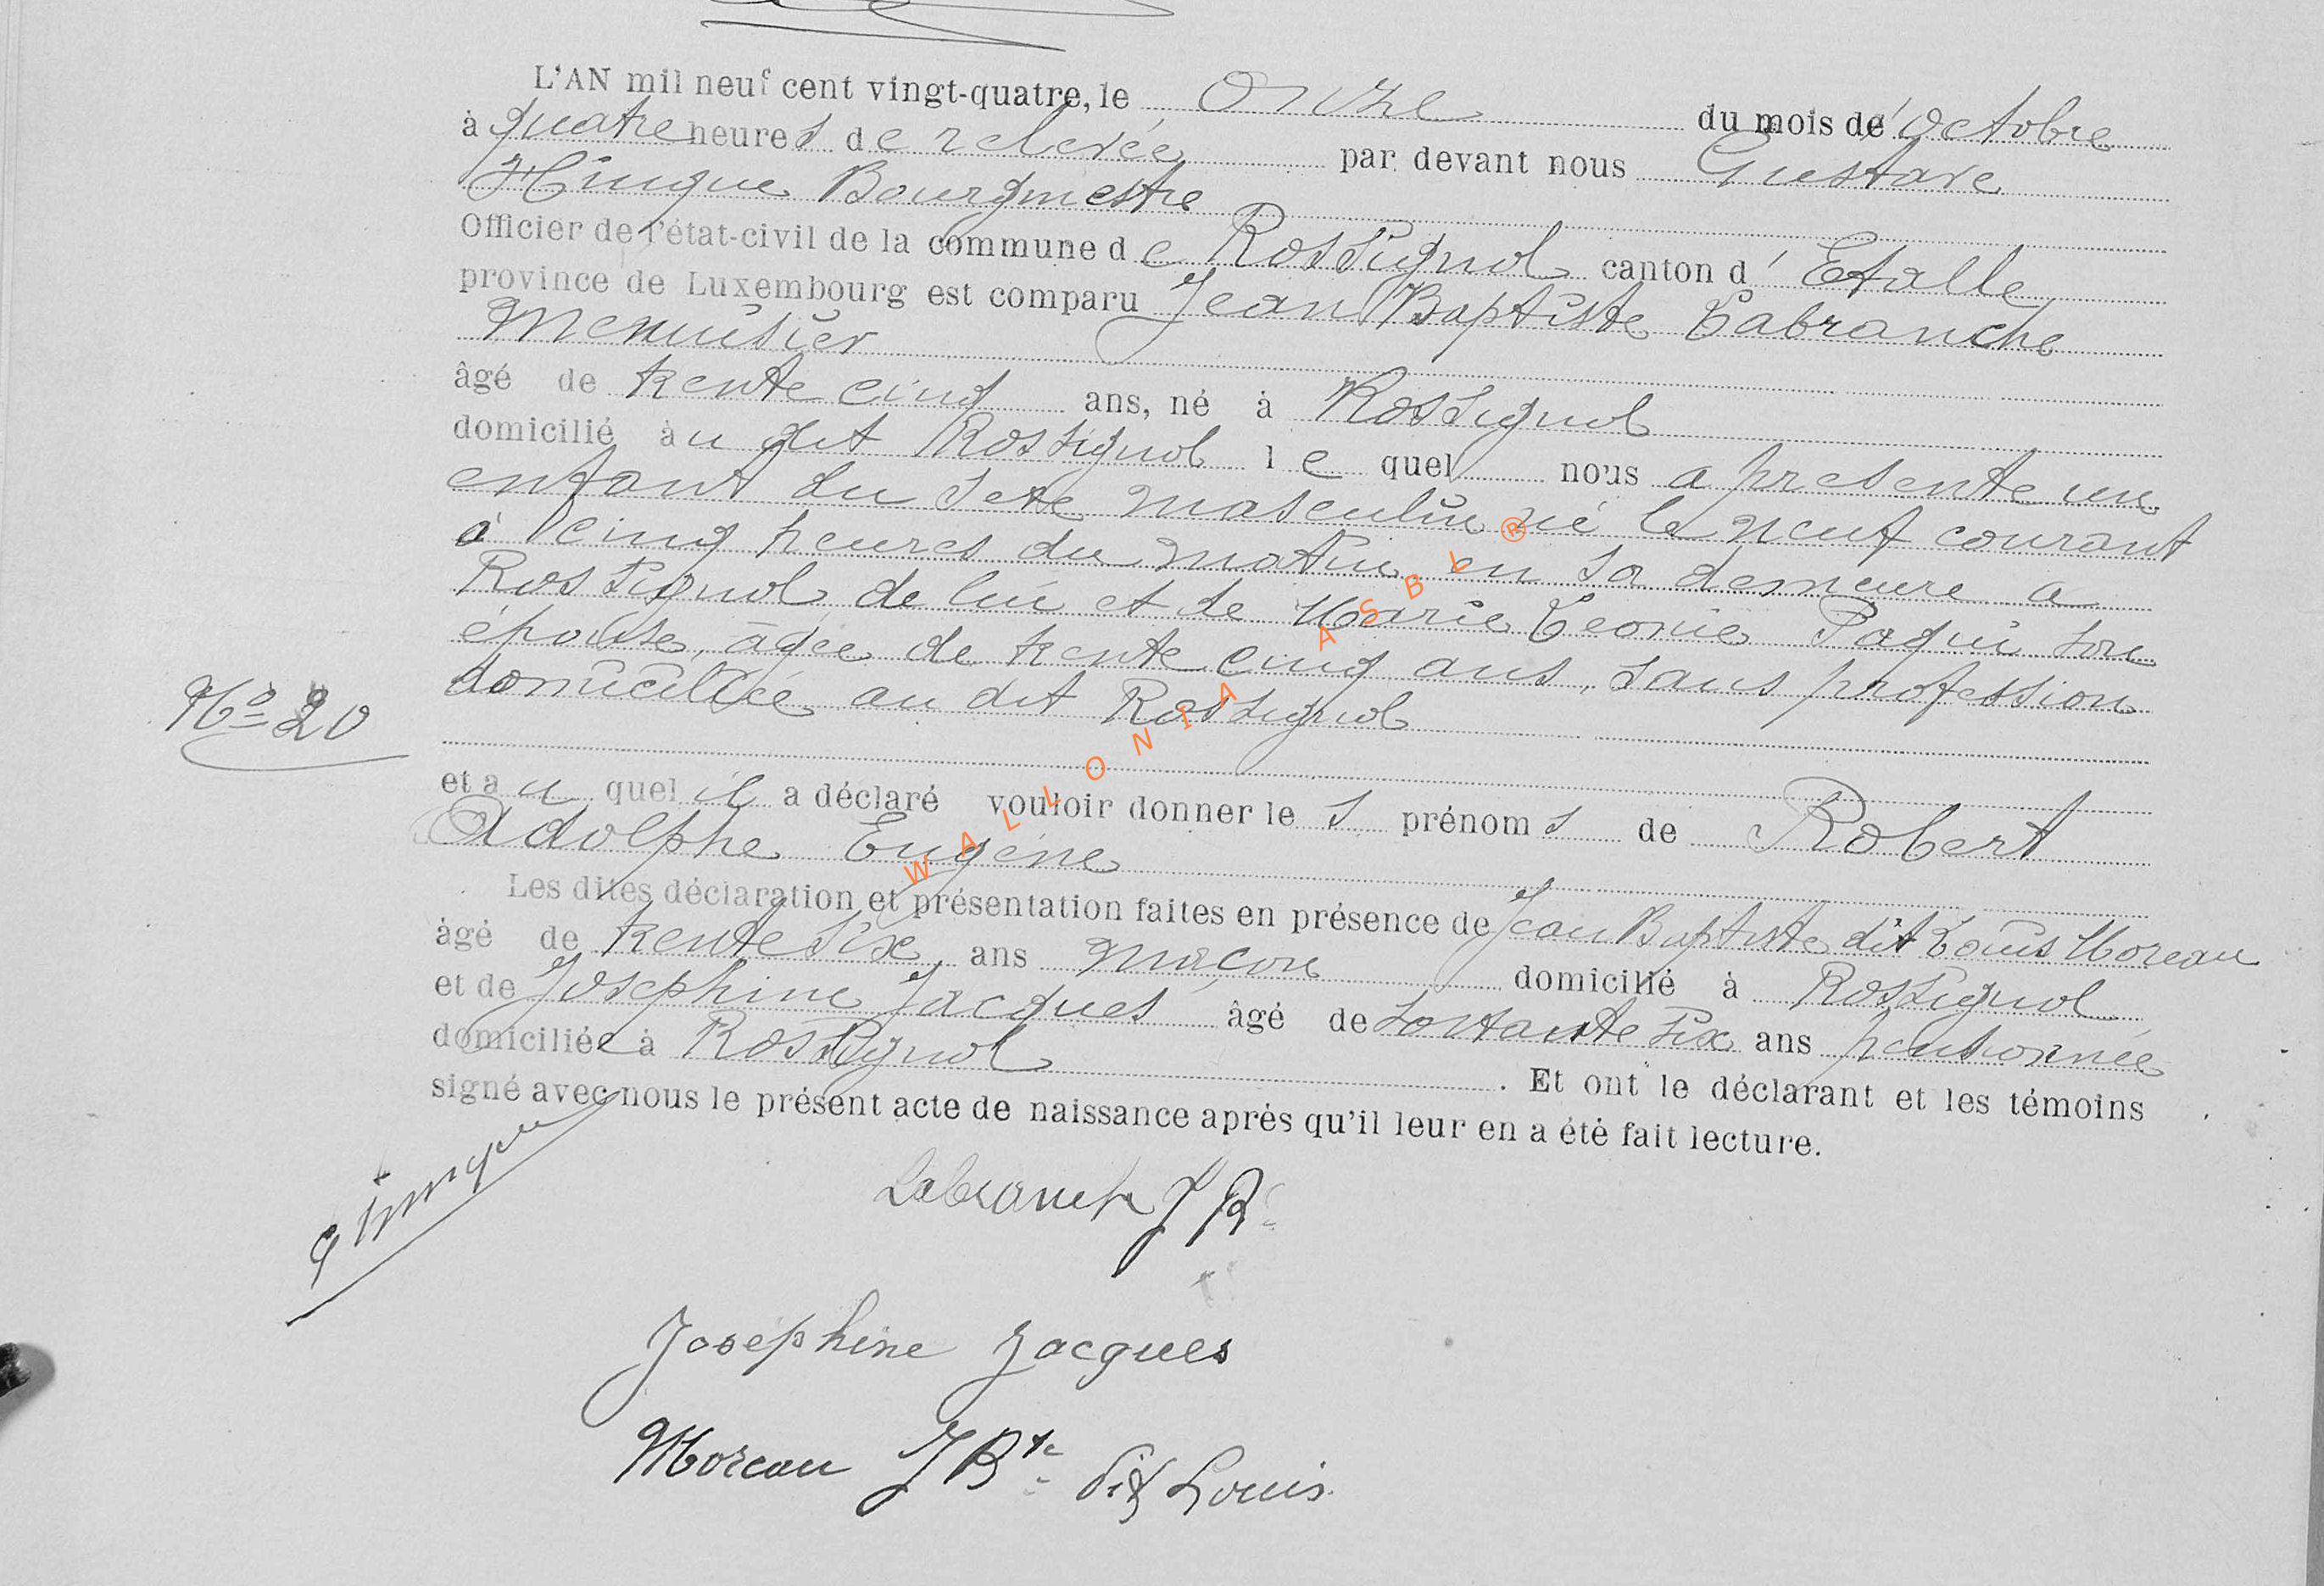 L'AN mil neuf cent vingt-quatre, le onze du mois de d'octobre
à quatre heures de relevée par devant nous Gustave
Hinque Bourgmestre
Officier de l'état-civil de la commune de Rossignol canton d'Etalle
province de Luxembourg est comparu Jean Baptiste Labranche
Menuisier
âgé de trente cinq ans, né à Rossignol
domicilié au dit Rossignol lequel nous a présenté un
enfant du sexe masculin né le neuf courant
à cinq heures du matin en sa demeure à
Rossignol de lui et de Marie Léonie Paqui son
épouse, âgée de trente cinq ans, sans profession
domiciliée au dit Rossignol
N° 20
et au quel il a déclaré vouloir donner les prénoms de Robert
Adolphe Eugène
Les dites déclaration et présentation faites en présence de Jean Baptiste dit Louis Moreau
âgé de trente six ans maçon domicilié à Rossignol
et de Joséphine Jacques âgé de soixante six ans pensionnée
domiciliée à Rossignol . Et ont le déclarant et les témoins
signé avec nous le présent acte de naissance après qu'il leur en a été fait lecture.
G Hinque
Labranche J B
Joséphine Jacques
Moreau J Bte dit Louis
WALLONIA ASBL ®